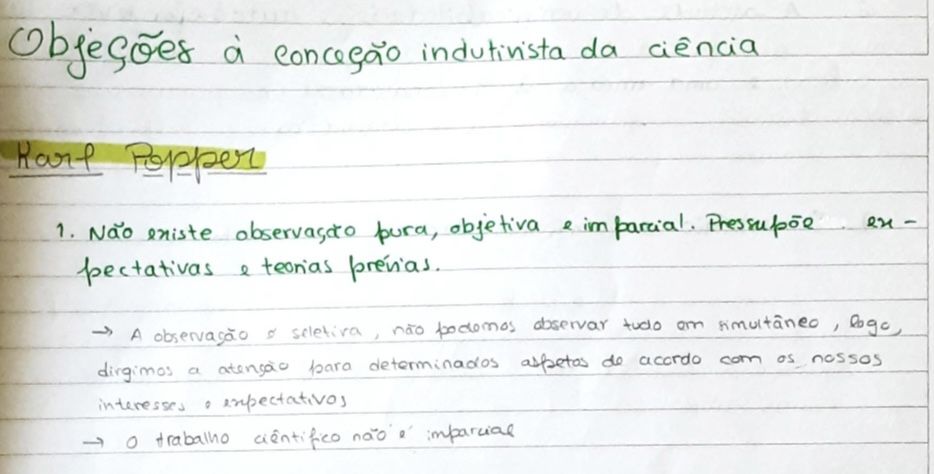 Objeções à conceção indutivista da ciência
Karl Popper
1. Não existe observação pura, objetiva e imparcial. Pressupõe ex-
pectativas e teorias prévias.
→ A observação é seletiva, não podemos observar tudo em simultâneo, logo,
dirgimos a atenção para determinados aspetas de acordo com os nossos
interesses e expectativas
→ O trabalho ciêntifico não é imparcial